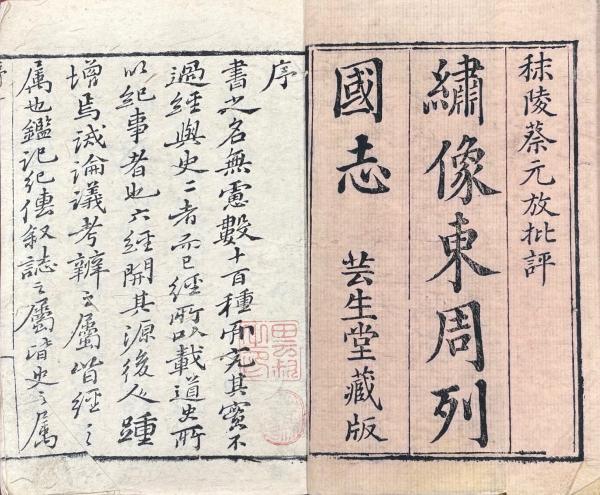 秣陵蔡元放批評
繡像東周列
國志 芸生堂藏版
序
書之名無慮數十百種而究其實不
過經與史二者而已經所以載道史所
以紀事者也六經開其源後人踵
增焉誡論議考辨之屬皆經之
属也鑑記紀傳敘誌之屬皆史之属